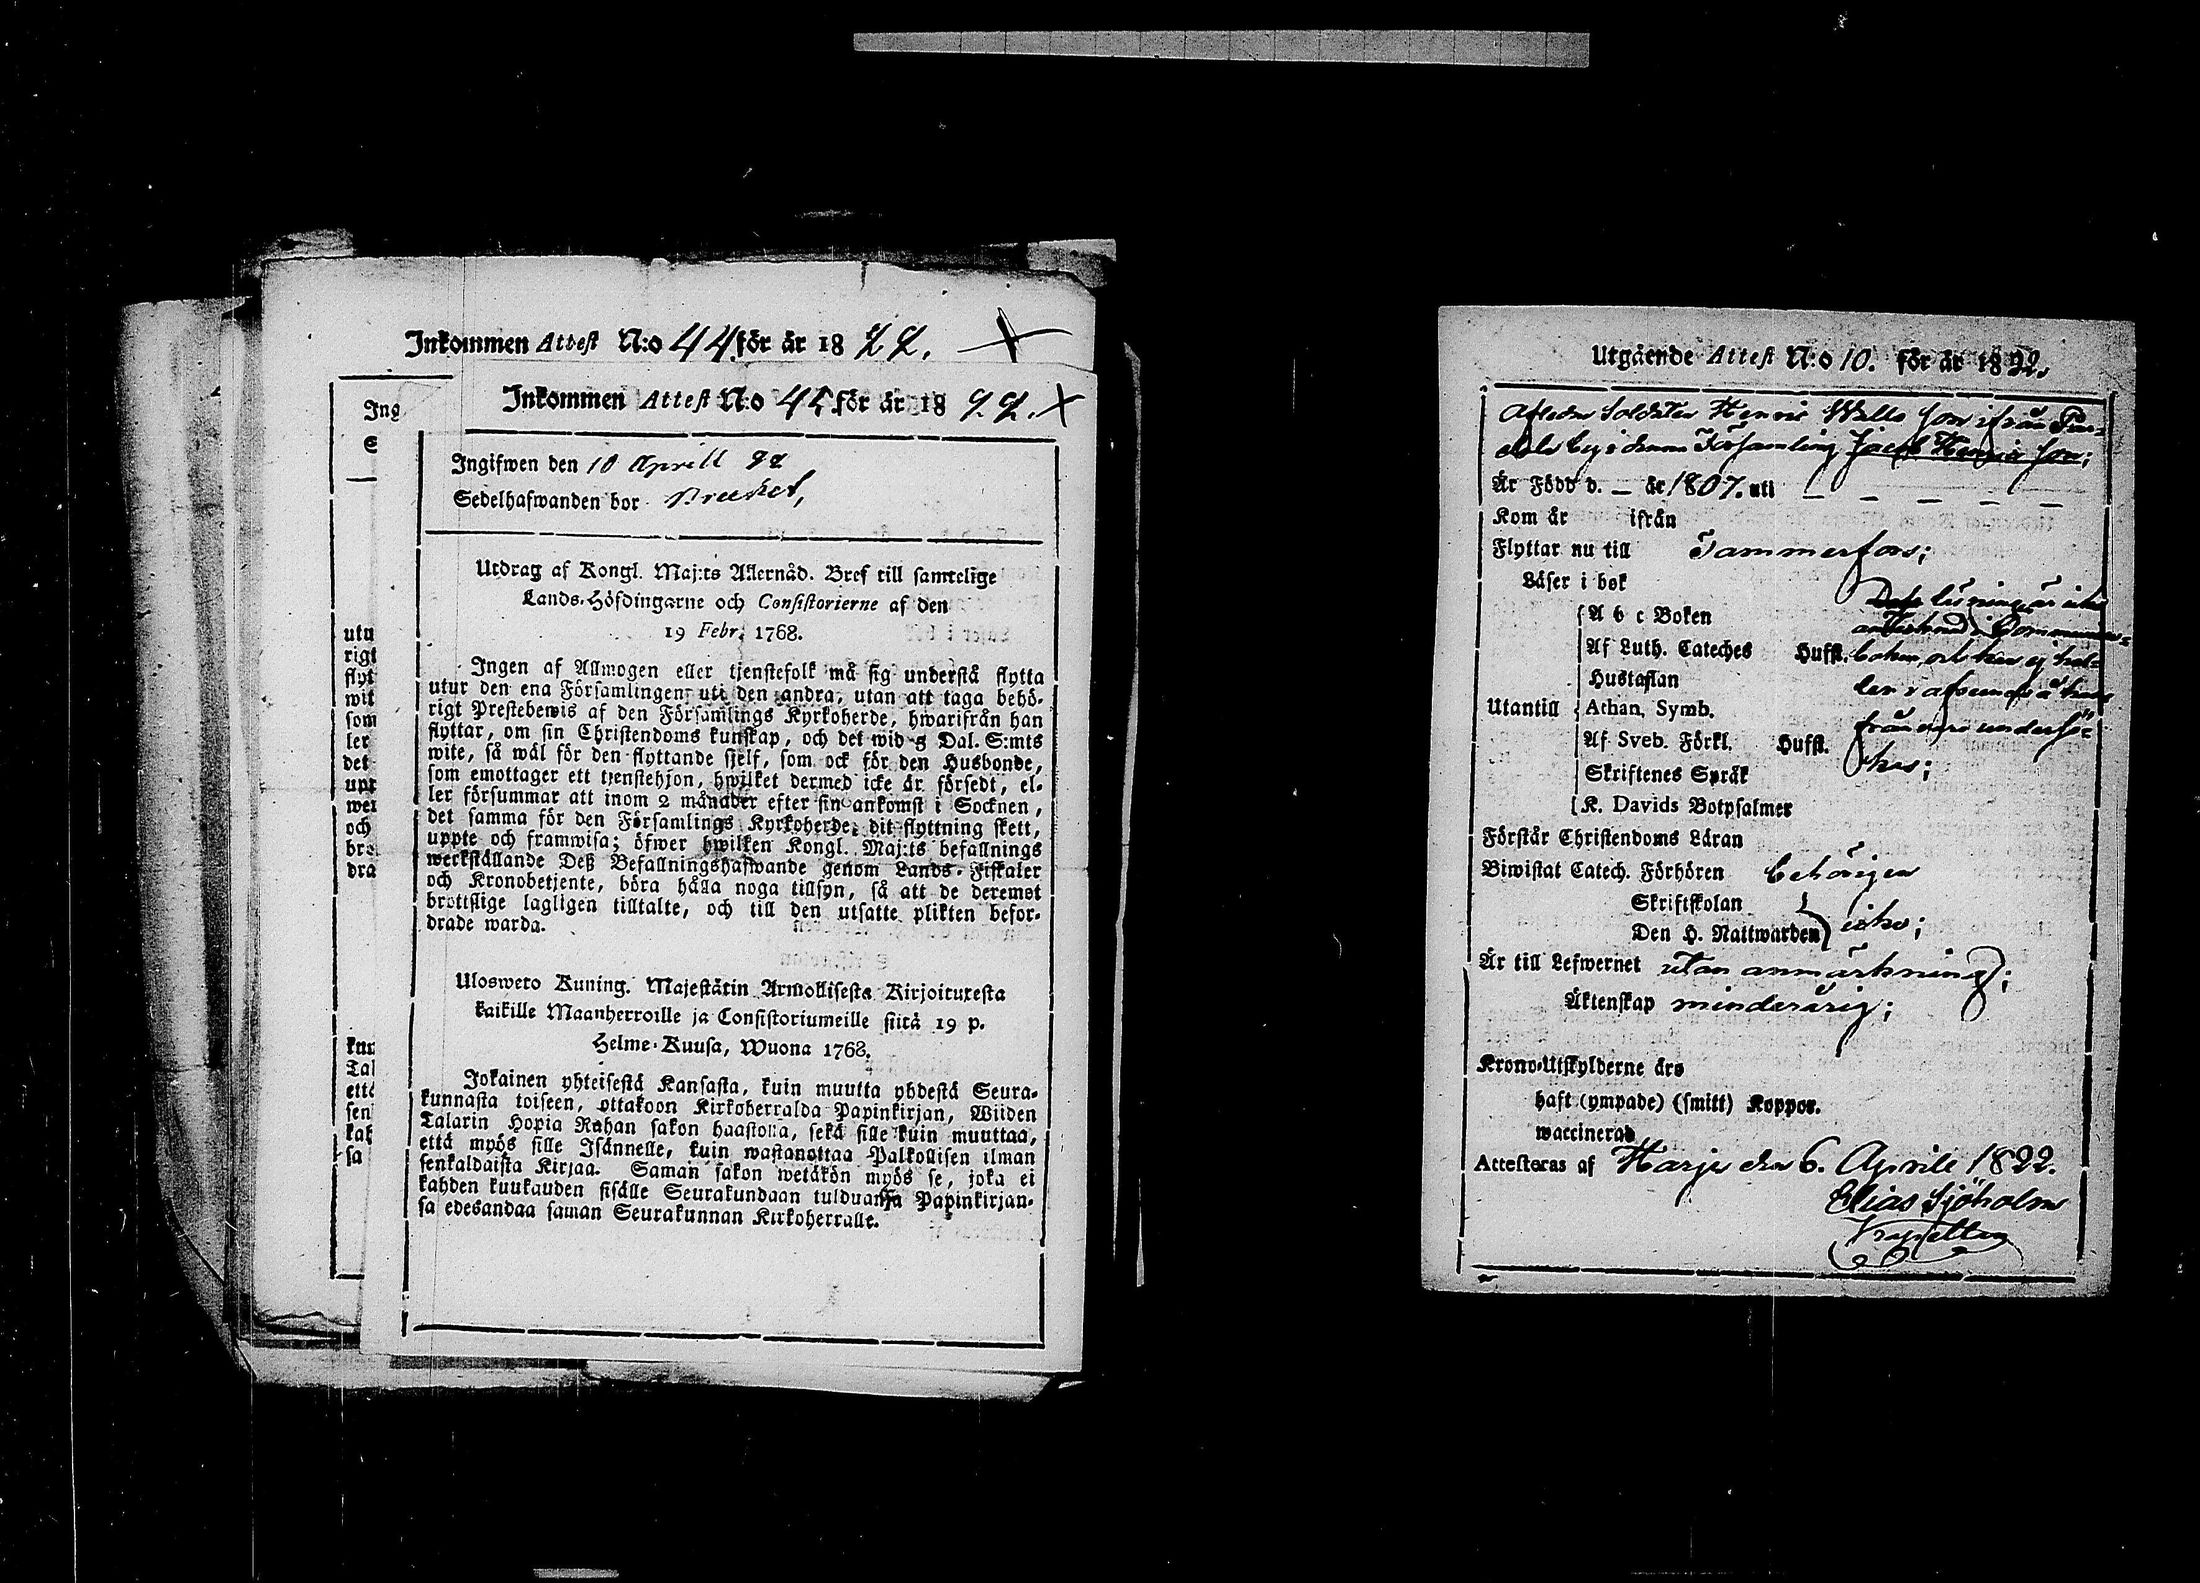 Inkommen Attest N:o 44 för år 1822.
Ing
S
utu
rigt
flyt
wit
som
ler
det
upp
wer
och
bro
dra
kun
Tal
että
sen
kah
sa
Inkommen Attest N:o för år 1822. X
Ingifwen den 10 Aprill 22
Sedelhafwanden bor
Utdrag af Kongl. Maj:ts Allernåd. Bref till samtelige
Lands-Höfdingarne och Consistorierne af den
19 Febr. 1768.
Ingen af Allmogen eller tjenstefolk må sig understå flytta
utur den ena Församlingen uti den andra, utan att taga behö-
rigt Prestebewis af den Församlings Kyrkoherde, hwarifrån han
flyttar, om sin Christendoms kunskap, och det wid 5 Dal. S:mts
wite, så wäl för den flyttande sjelf, som ock för den Husbonde,
som emottager ett tjenstehjon, hwilket dermed icke är försedt, el-
ler försummar att inom 2 månader efter sin ankomst i Socknen,
det samma för den Församlings Kyrkoherde, dit flyttning skett,
uppte och framwisa; öfwer hwilken Kongl. Maj:ts befallnings
werkställande Deß Befallningshafwande genom Lands-Fiskaler
och Kronobetjente, böra hålla noga tillsyn, så att de deremot
brottslige lagligen tilltalte, och till den utsatte plikten befor-
drade warda.
Ulosweto Kuning. Majestätin Armollisesta Kirjoituxesta
kaikille Maanherroille ja Consistoriumeille siitä 19 p.
Helme-Kuusa, Wuona 1768.
Jokainen yhteisestä Kansasta, kuin muutta yhdestä Seura-
kunnasta toiseen, ottakoon Kirkoherralda Papinkirjan, Wiiden
Talarin Hopia Rahan sakon haastolla, sekä sille kuin muuttaa,
että myös sille Isännelle, kuin wastanottaa Palkollisen ilman
senkaldaista Kirjaa. Saman sakon wetäkön myös se, joka ei
kahden kuukauden sisälle Seurakundaan tulduansa Papinkirjan-
sa edesandaa saman Seurakunnan Kirkoherralle.
Utgående Attest N:o 10. för år 1822.
Afledne Soldaten Henric Wills son ifrån
by i denna Församling Jacob Henrics son;
Är Född d. — år 1807. uti — — — —
Kom år ifrån
Flyttar nu till Tammerfors;
Läser i bok
A b c Boken
Af Luth. Cateches Hufst.
Hustaflan
Utantill Athan. Symb.
Af Sveb. Förkl. Hufst.
Skriftenes Språk
K. Davids Botpsalmer
Dess läsning är icke
antecknad i Communion-
boken, och har ej hel-
ler i afseende å
från varo undersö-
kas;
Förstår Christendoms Läran
Biwistat Catech. Förhören behörigen
Skriftskolan
Den H. Nattwarden icke;
Är till Lefwernet utan anmärkning;
Äktenskap minderårig;
Krono-Utskylderne äro
haft (ympade) (smitt) Koppor.
waccinerad
Attesteras af Harju den 6. Aprile 1822.
Elias Sjöholm